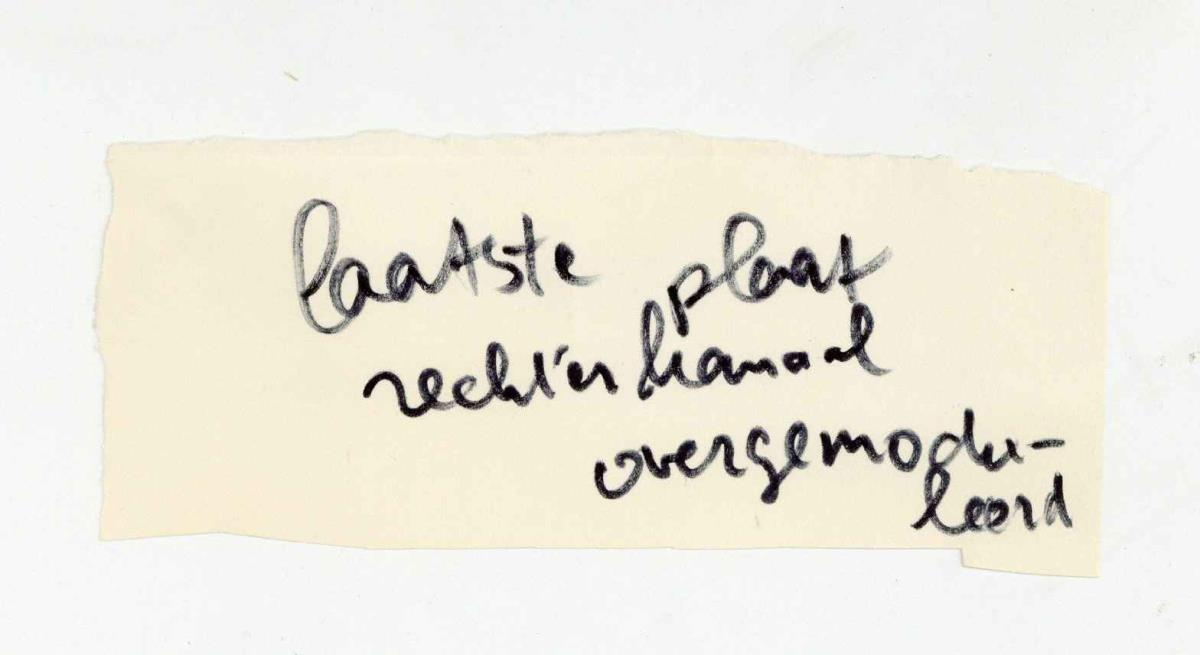 laatste plaat
rechter kanaal
overgemodu-
leerd